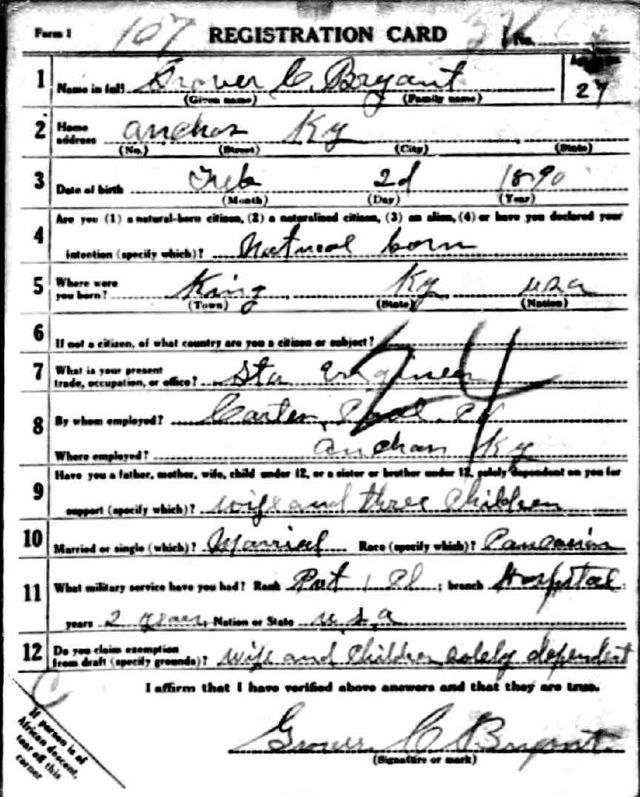 Form 1 107 REGISTRATION CARD No.
1 Name in full Grover C. Bryant 27
(Given name) (Family name)
2 Home address Anchor Ky
(No.) (Street) (City) (State)
3 Date of birth Feb 2d 1890
(Month) (Day) (Year)
4 Are you (1) a natural-born citizen, (2) a naturalized citizen, (3) an alien, (4) or have you declared your
intention (specify which)? Natural born
5 Where were you born? King Ky USA
(Town) (State) (Nation)
6 If not a citizen, of what country are you a citizen or subject?
7 What is your present trade, occupation, or office? Sta Engineer 24
8 By whom employed? Carter
Where employed? Anchor Ky
9 Have you a father, mother, wife, child under 12, or a sister or brother under 12, solely dependent on you for
support (specify which)? wife and three children
10 Married or single (which)? Married Race (specify which)?
11 What military service have you had? Rank ; branch Hospital
years 2 years, Nation or State U.S.A
12 Do you claim exemption from draft (specify grounds)? wife and children solely dependent
I affirm that I have verified above answers and that they are true.
Grover C Bryant
(Signature or mark)
If person is of
African descent,
tear off this
corner